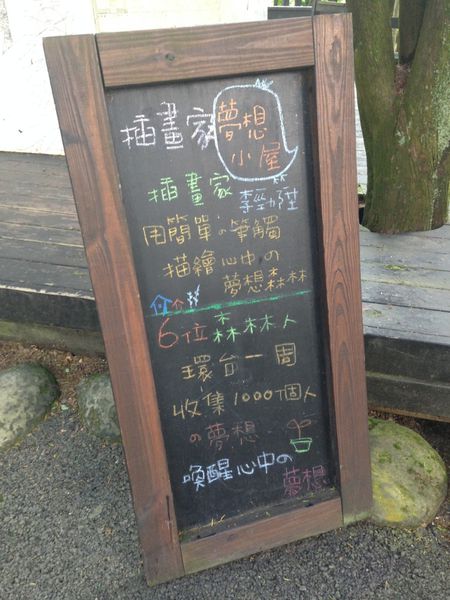 插畫家夢想
小屋
插畫家
用簡單の筆觸
描繪心中の
夢想森林
6位森林人
環台一周
收集1000個人
の夢想
喚醒心中の
夢想